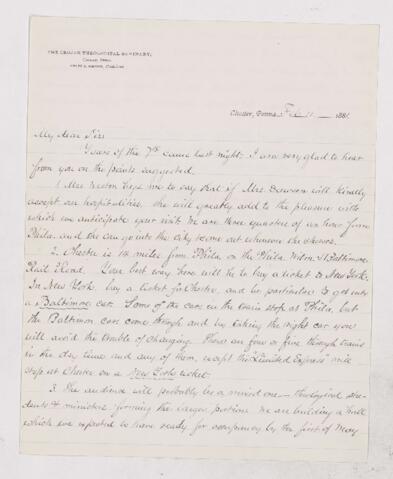 THE CROZER THEOLOGICAL SEMINARY,
Chester, Penna. Feb 11 1881
My dear Sir:
Yours of the 7th came last night. I am very glad to hear
from you on the points suggested.
1. Mrs. Weston begs me to say that if Mrs. Dawson will kindly
accept our hospitalities, she will greatly add to the pleasure with
which we anticipate your visit. We are three quarters of an hour from
Phila. and she can go into the city & come out whenever she desires.
2. Chester is 14 miles from Phila. on the Phila. Wilm. & Baltimore
Rail Road. Your best way here will be to buy a ticket to New York.
In New York buy a ticket for Chester, and be particular to get into
a Baltimore car. Some of the cars in the train stop at Phila, but
the Baltimore cars come through and by taking the right car you
will avoid the trouble of changing. There are four or five through trains
in the day time and any of them, except the "Limited Express" will
stop at Chester on a New York ticket.
3. The audience will probably be a mixed one — theological stu-
dents & ministers forming the larger portion. We are building a Hall
which we expected to have ready for occupancy by the first of May